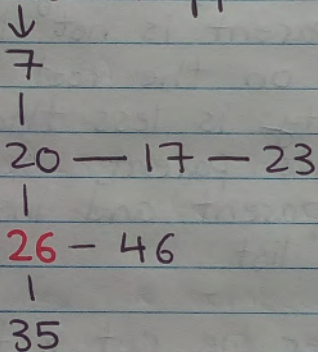 ↓
7
|
20 — 17 — 23
|
26 - 46
|
35